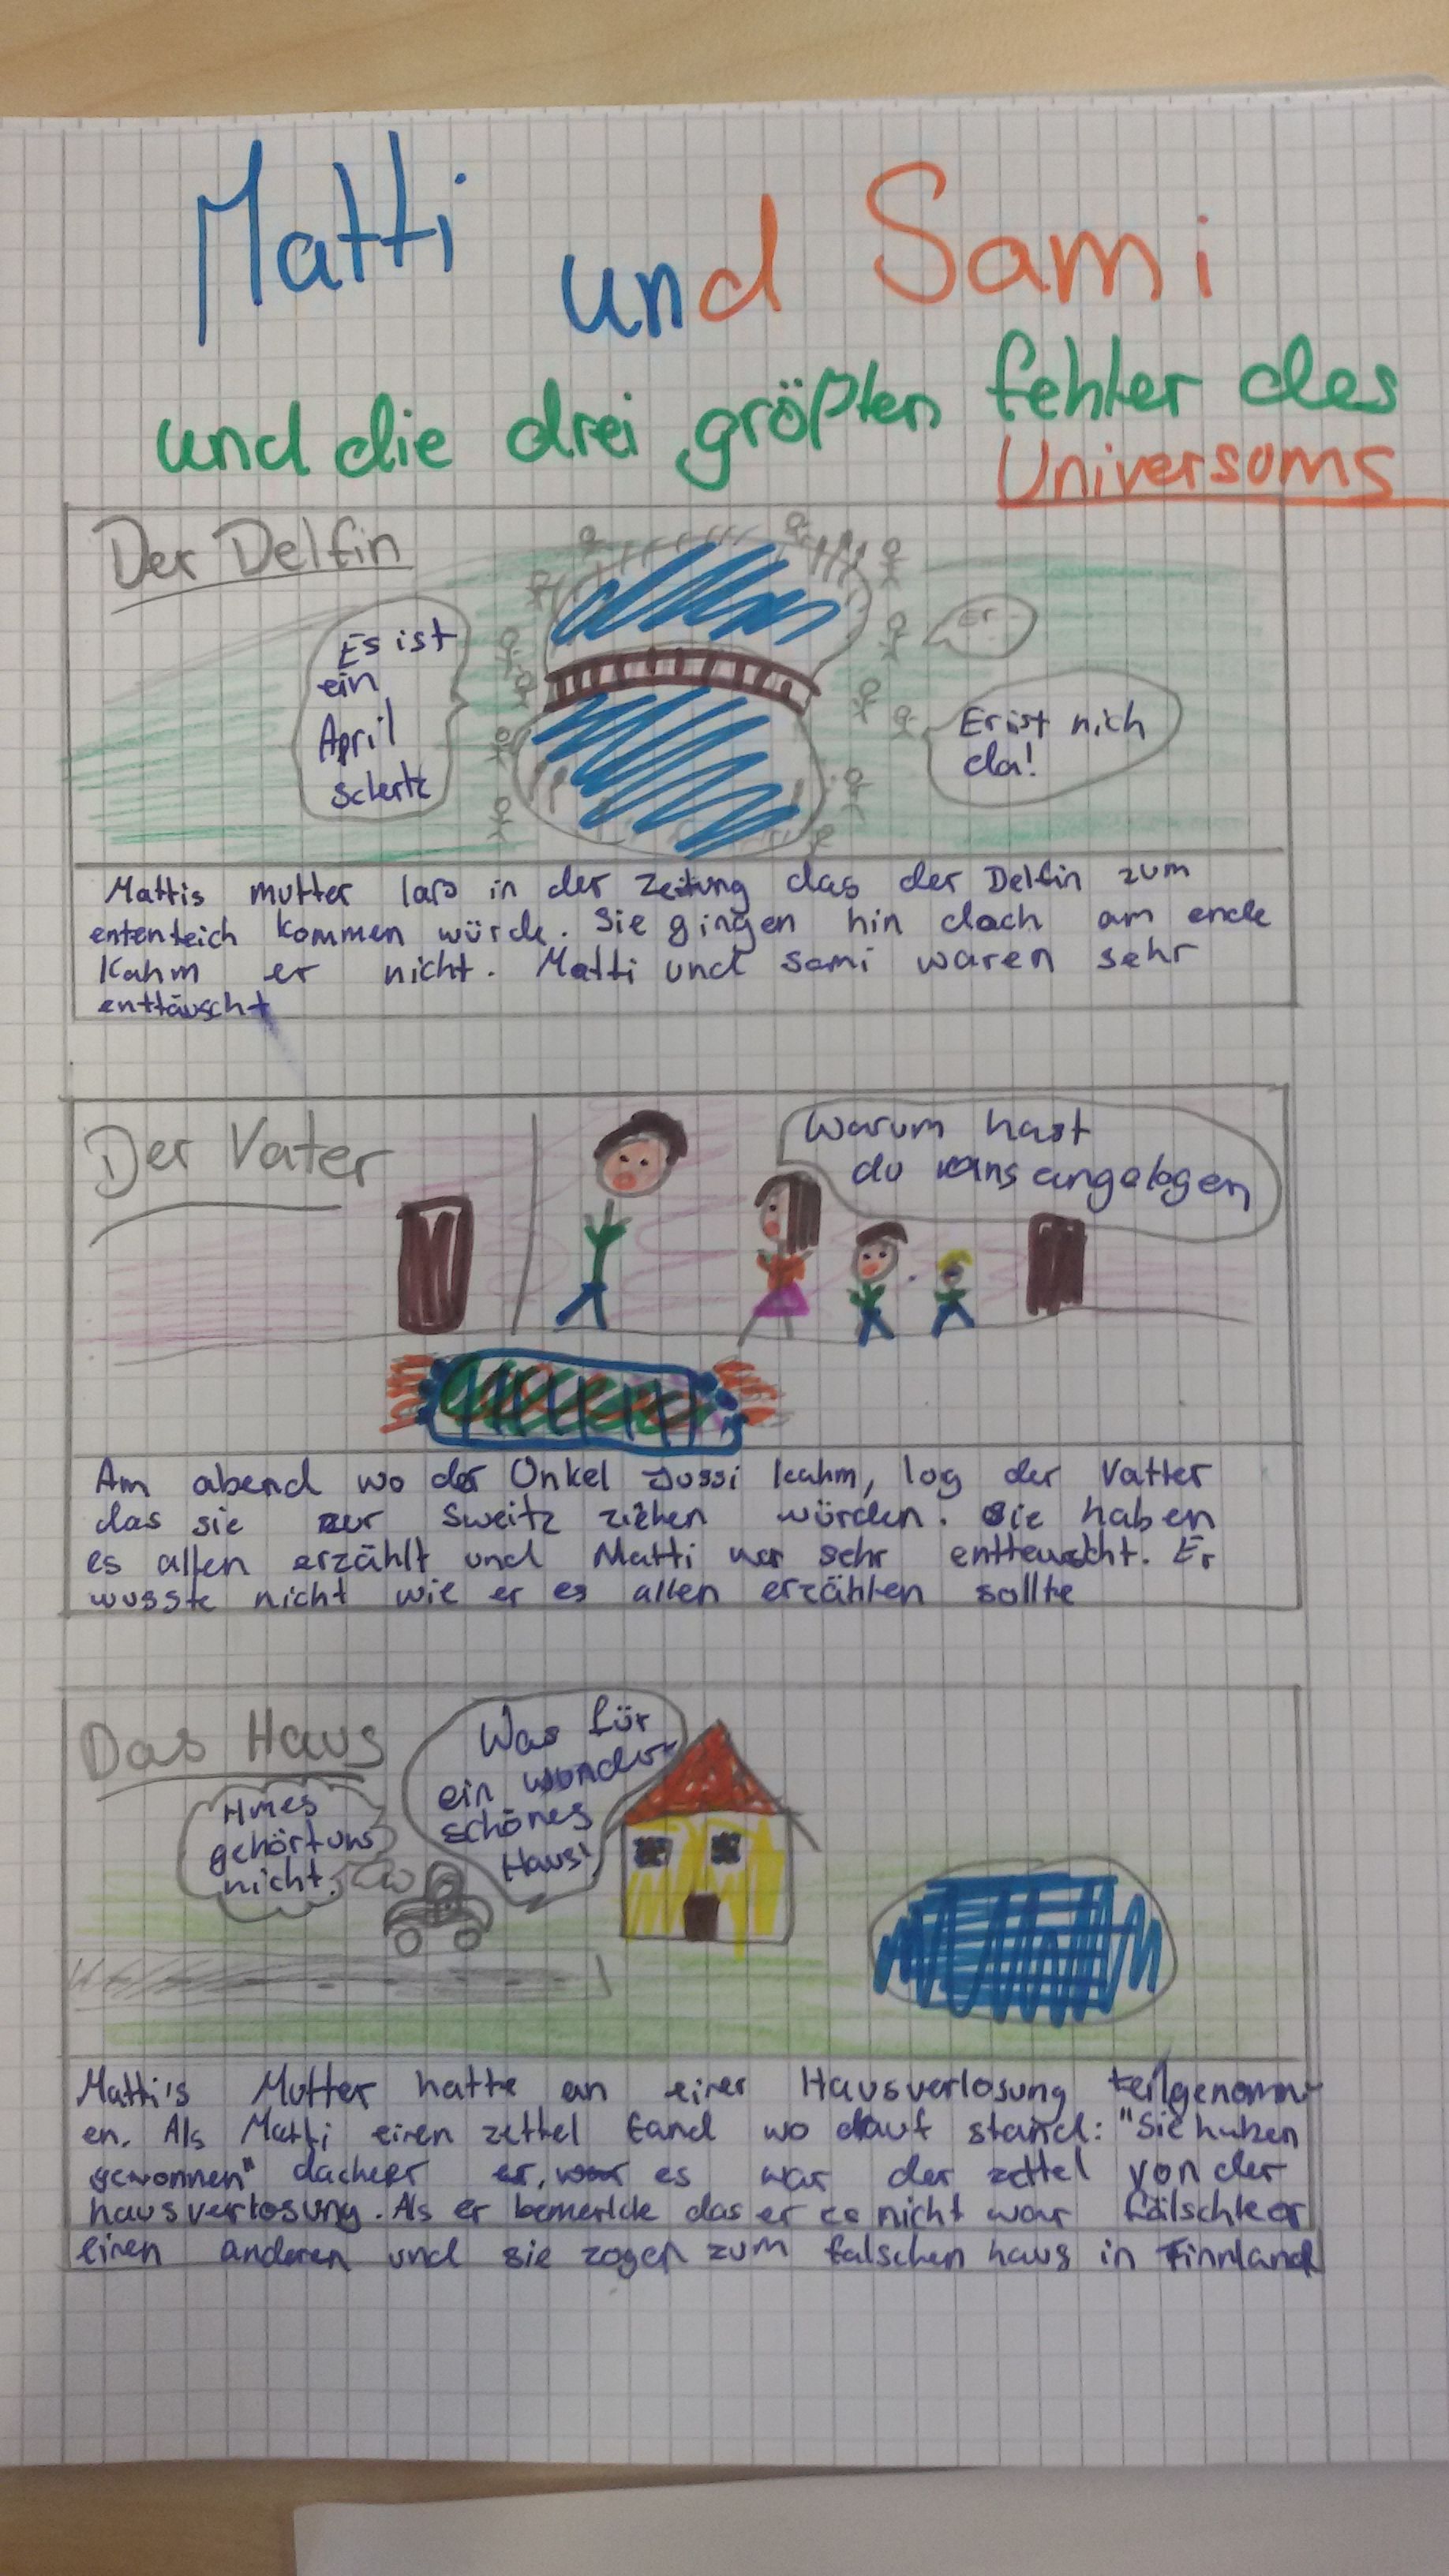 Matti und Sami
und die drei größten fehler des
Universums
Der Delfin
Es ist
ein
April
schertz
Er
Er ist nich
da!
Mattis mutter lars in der Zeitung das der Delfin zum
ententeich kommen würde. Sie gingen hin doch am ende
Kahm er nicht. Matti und sami waren sehr
enttäuscht
Der Vater
Warum hast
du uns angelogen
Am abend wo der Onkel Jussi kahm, log der Vatter
das sie zur Sweitz ziehen würden. Sie haben
es allen erzählt und Matti war sehr entteuscht. Er
wusste nicht wie er es allen erzählen sollte
Das Haus
Hm es
gehört uns
nicht.
Was für
ein wunder
schönes
Haus!
Matti's Mutter hatte an einer Hausverlosung teilgenomm
en. Als Matti einen zettel fand wo drauf stand: "Sie haben
gewonnen" dachte er, es war der zettel von der
hausverlosung. Als er bemerkte das er es nicht war fälschte er
einen anderen und sie zogen zum falschen haus in Finnland